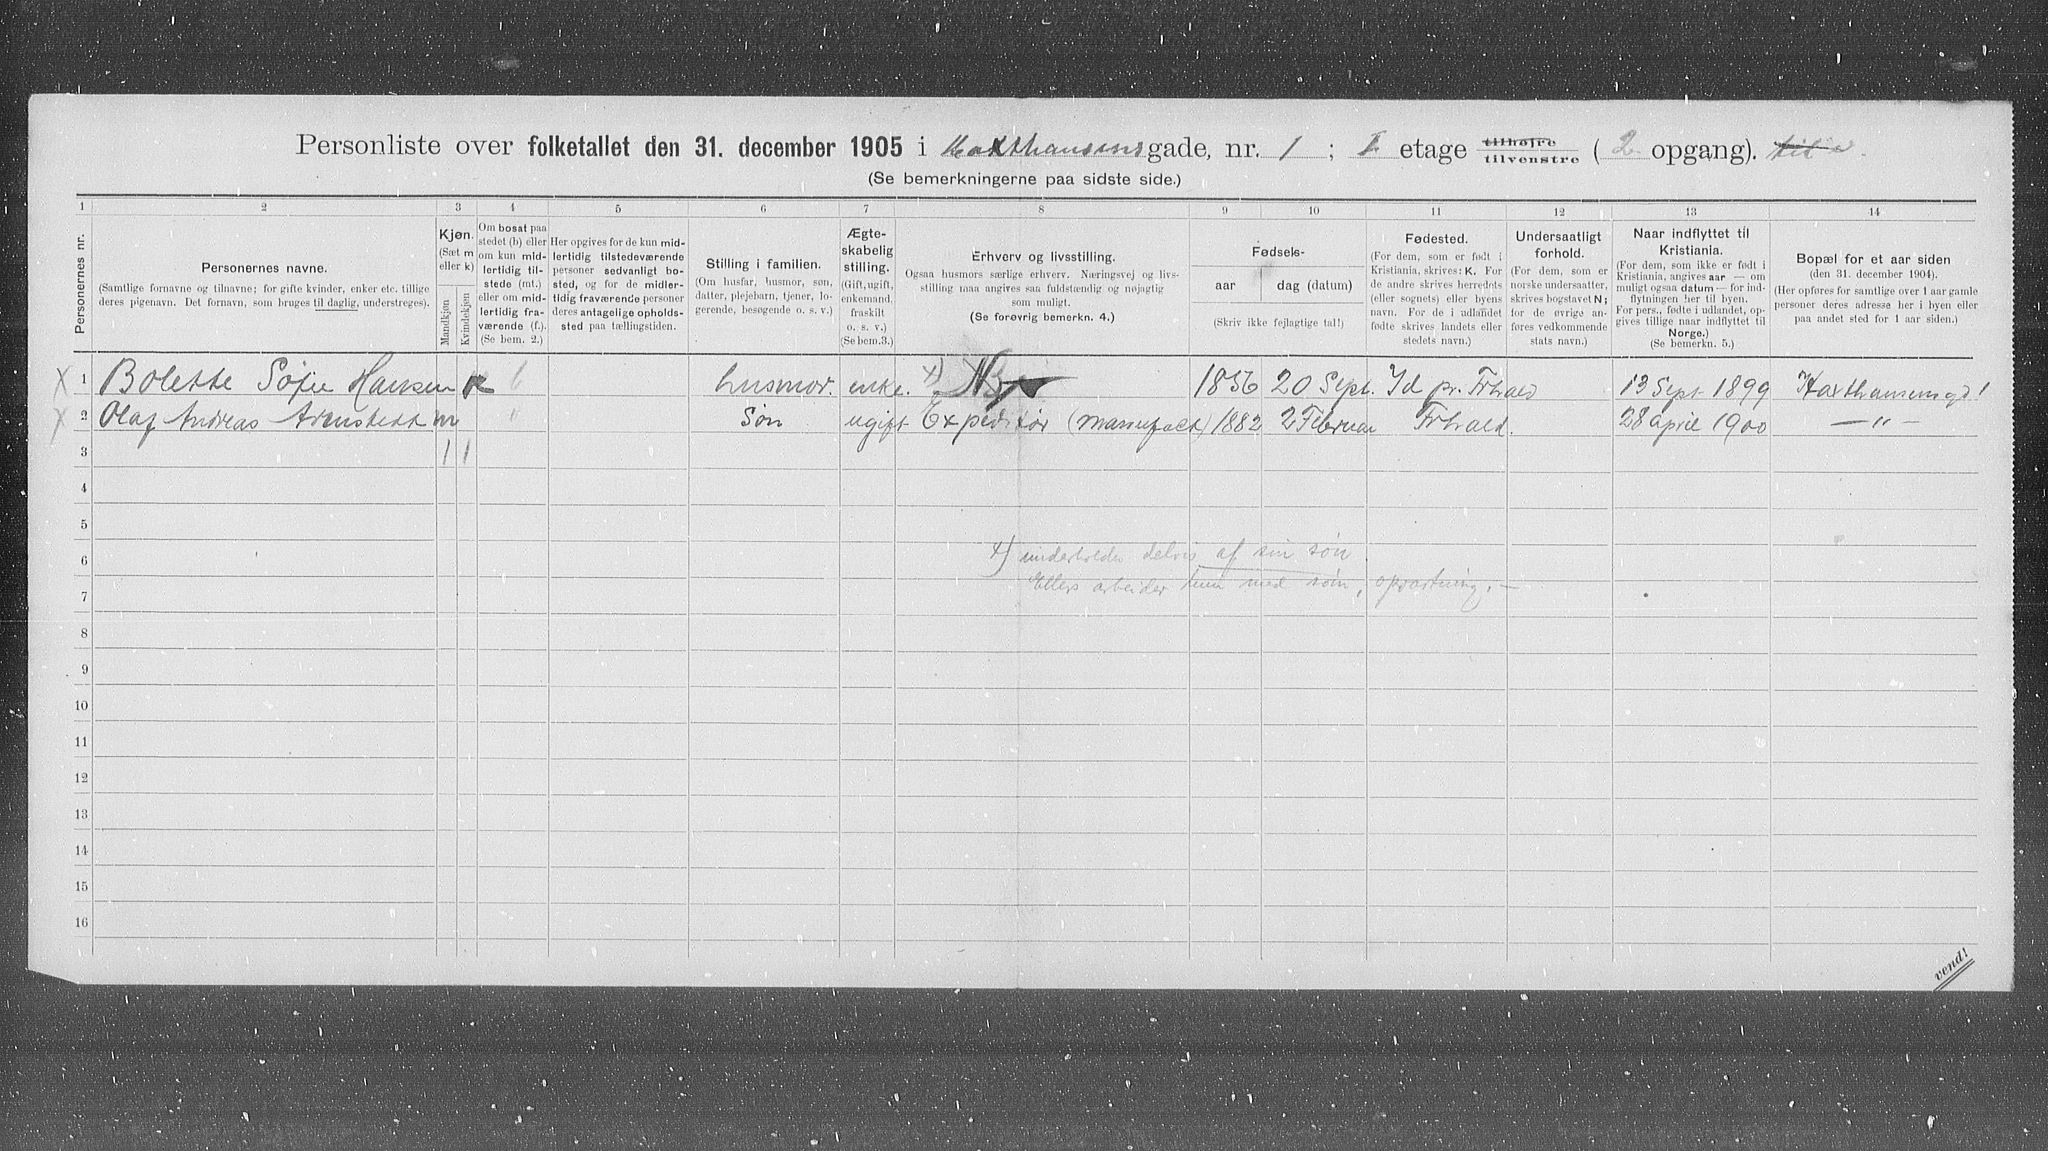 Personliste over folketallet den 31. december 1905 i Haxthausens gade, nr. 1 ; I etage tilhøjre tilvenstre ( 2 opgang).
(Se bemerkningerne paa sidste side.)
1 2 3 4 5 6 7 8 9 10 11 12 13 14
Personernes nr.
Personernes navne.
(Samtlige fornavne og tilnavne; for gifte kvinder, enker etc. tillige
deres pigenavn. Det fornavn, som bruges til daglig, understreges).
Kjøn.
(Sæt m
eller k)
Mandkjøn
Kvindekjøn
Om bosat paa
stedet (b) eller
om kun mid-
lertidig til-
stede (mt.)
eller om mid-
lertidig fra-
værende (f.).
(Se bem. 2.)
Her opgives for de kun mid-
lertidig tilstedeværende
personer sedvanligt bo-
sted, og for de midler-
tidig fraværende personer
deres antagelige opholds-
sted paa tællingstiden.
Stilling i familien.
(Om husfar, husmor, søn,
datter, plejebarn, tjener, lo-
gerende, besøgende o. s. v.)
Ægte-
skabelig
stilling.
(Gift, ugift,
enkemand,
fraskilt
o. s. v.)
(Se bem.3.)
Erhverv og livsstilling.
Ogsaa husmors særlige erhverv. Næringsvej og livs-
stilling maa angives saa fuldstændig og nøjagtig
som muligt.
(Se forøvrig bemerkn. 4.)
Fødsels-
aar
dag (datum)
(Skriv ikke fejlagtige tal!)
Fødested.
(For dem, som er født i
Kristiania, skrives: K. For
de andre skrives herredets
(eller sognets) eller byens
navn. For de i udlandet
fødte skrives landets eller
stedets navn.)
Undersaatligt
forhold.
(For dem, som er
norske undersaatter,
skrives bogstavet N;
for de øvrige an-
føres vedkommende
stats navn.)
Naar indflyttet til
Kristiania.
(For dem, som ikke er født i
Kristiania, angives aar — om
muligt ogsaa datum — for ind-
flytningen her til byen.
For pers., fødte i udlandet, op-
gives tillige naar indflyttet til
Norge.)
(Se bemerkn. 5.)
Bopæl for et aar siden
(den 31. december 1904).
(Her opføres for samtlige over 1 aar gamle
personer deres adresse her i byen eller
paa andet sted for 1 aar siden.)
X 1 Bolette Sofie Hansen k b husmor. enke. x) 1856 20 Sept. Id pr. Frhald 13 Sept 1899 Haxthausensgd 1
X 2 Olaf Andreas m " Søn ugift Expeditør (manufact) 1882 2 Februar Frhald. 28 april 1900 — " —
3 1 1
4
5
6 x) underholdes delvis af sin søn.
7 Ellers arbeider hun med søm, opvartning. —
8
9
10
11
12
13
14
15
16
vend!